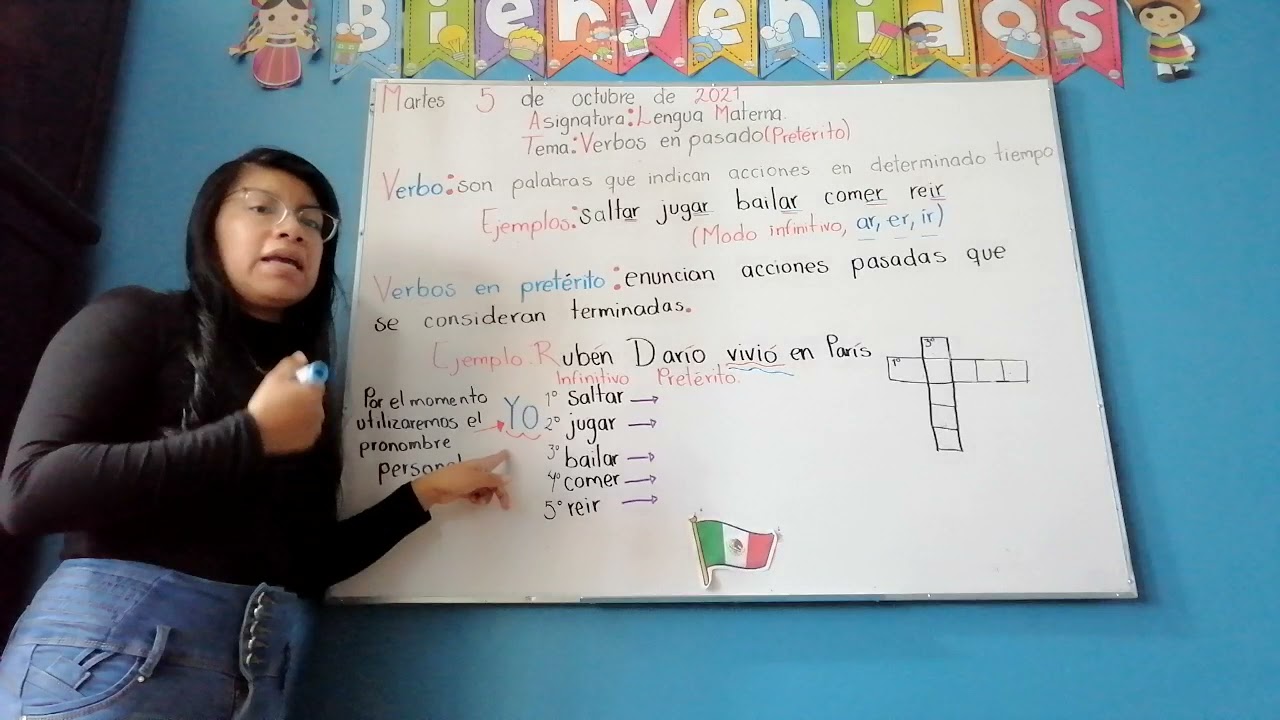 Bienvenidos
Martes 5 de octubre de 2021
Asignatura: Lengua Materna.
Tema: Verbos en pasado (Pretérito)
Verbo: son palabras que indican acciones en determinado tiempo
Ejemplos: saltar jugar bailar comer reir
(Modo infinitivo, ar, er, ir)
Verbos en pretérito: enuncian acciones pasadas que
se consideran terminadas.
Ejemplo: Rubén Darío vivió en París
Infinitivo Pretérito.
Por el momento
utilizaremos el
pronombre
personal
YO
1° saltar
2° jugar
3° bailar
4° comer
5° reir
3°
1°